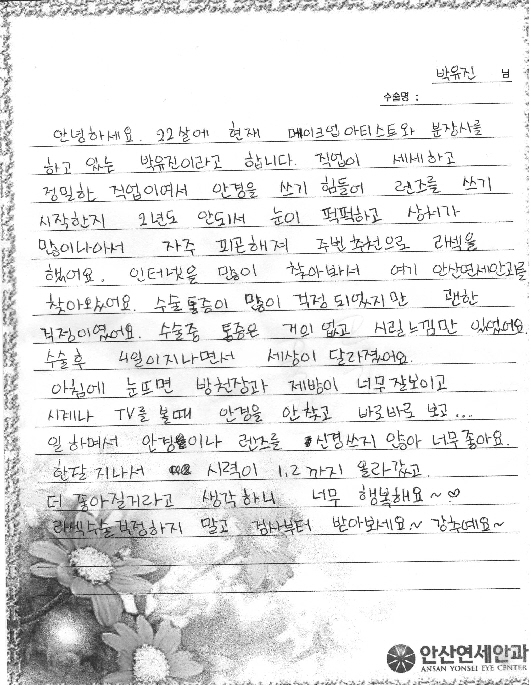 박유진 님
수술명 :
안녕하세요. 22살에 현재 메이크업 아티스트와 분장사를
하고 있는 박유진이라고 합니다. 직업이 세세하고
정밀한 직업이여서 안경을 쓰기 힘들어 렌즈를 쓰기
시작한지 2년도 안되서 눈이 퍽퍽하고 상처가
많이나아서 자주 피곤해져 주변추천으로 라섹을
했어요. 인터넷을 많이 찾아봐서 여기 안산연세안과를
찾아왔어요. 수술통증이 많이 걱정 되었지만 괜한
걱정이였어요. 수술중 통증은 거의 없고 시릴느낌만 있었어요.
수술후 4일이지나면서 세상이 달라졌어요.
아침에 눈뜨면 방천장과 제방이 너무잘보이고
시계나 TV를 볼때 안경을 안찾고 바로바로 보고...
일 하면서 안경이나 렌즈를 신경쓰지 않아 너무좋아요.
한달 지나서 시력이 1.2 까지 올라갔고
더 좋아질거라고 생각하니 너무 행복해요~♡
라섹수술걱정하지 말고 검사부터 받아보세요~ 강추예요~
안산연세안과
ANSAN YONSEI EYE CENTER